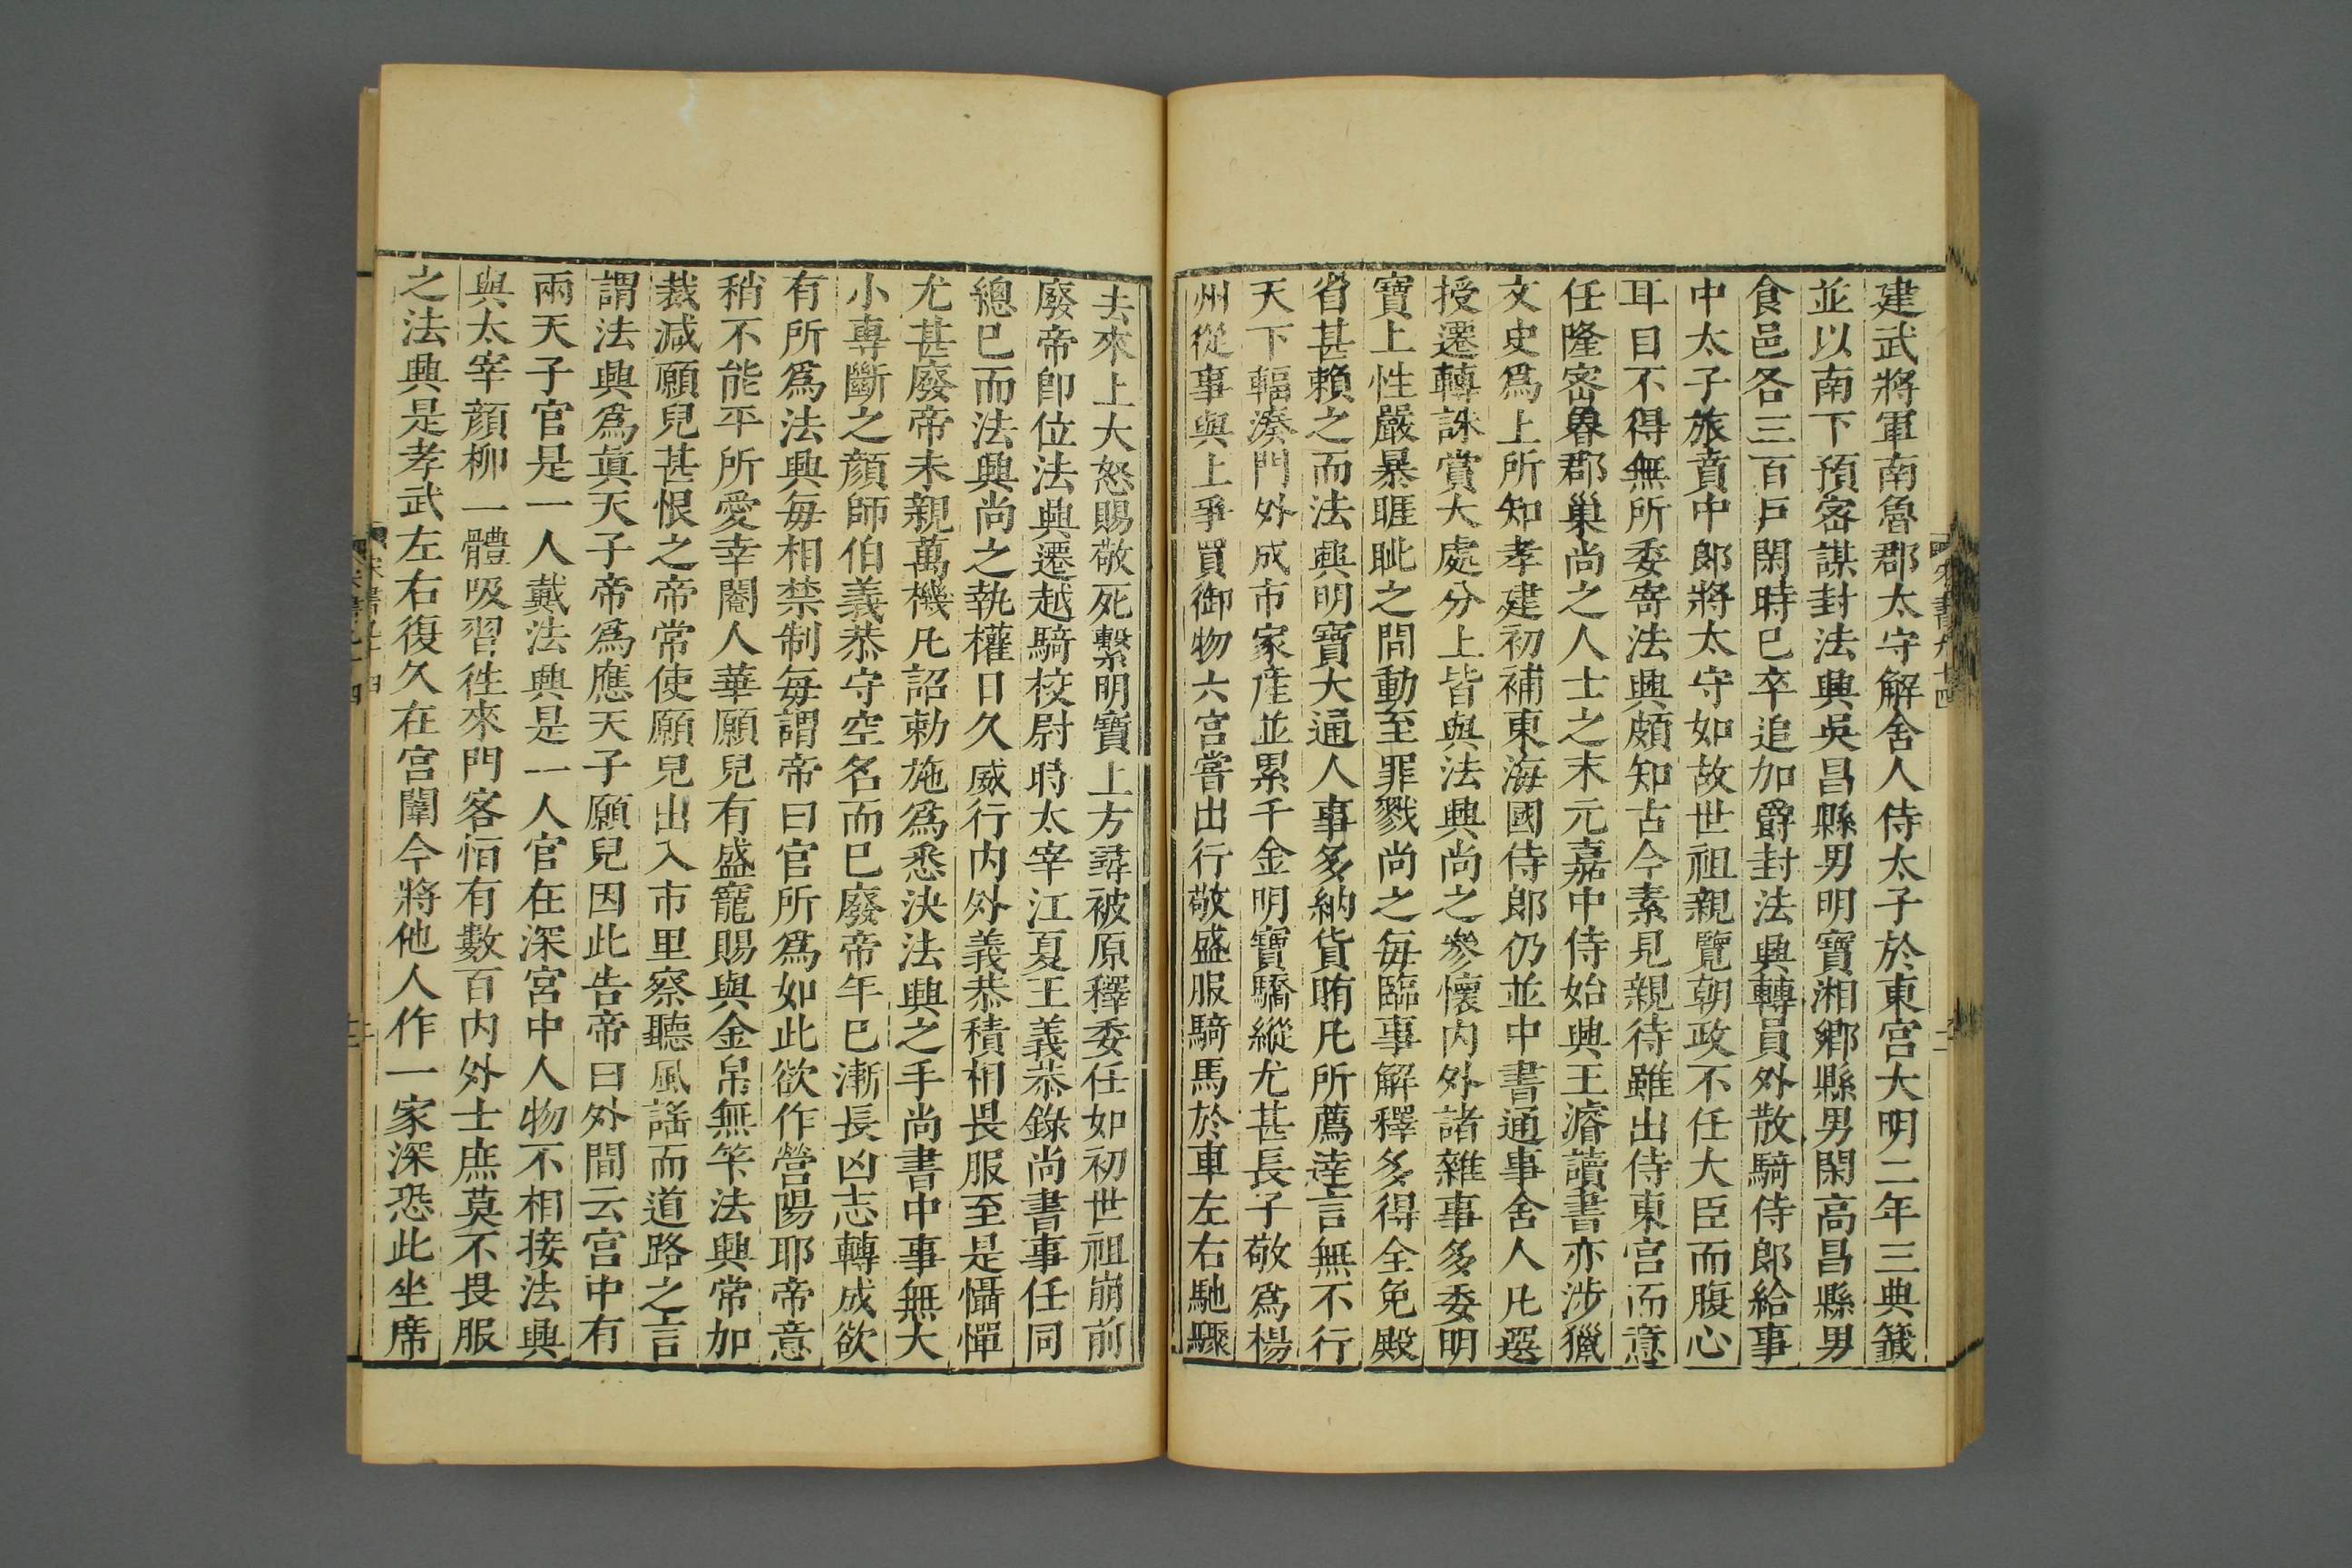 建武將軍南魯郡太守解舍人侍太子於東宮大明二年三典籖
並以南下預密謀封法興吳昌縣男明寶湘鄉縣男閑高昌縣男
食邑各三百戸閑時已卒追加爵封法興轉員外散騎侍郎給事
中太子旅賁中郎將太守如故世祖親覽朝政不任大臣而腹心
耳目不得無所委寄法興頗知古今素見親待雖出侍東宮而意
任隆密魯郡巢尚之人士之末元嘉中侍始興王濬讀書亦涉獵
文史爲上所知孝建初補東海國侍郎仍並中書通事舍人凡選
授遷轉誅賞大處分上皆與法興尚之參懷内外諸雜事多委明
寶上性嚴暴睚眦之間動至罪戮尚之每臨事解釋多得全免殿
省甚賴之而法興明寶大通人事多納貨賄凡所薦達言無不行
天下輻湊門外成市家產並累千金明寶驕縱尤甚長子敬爲楊
州從事與上爭買御物六宮嘗出行敬盛服騎馬於車左右馳驟
去來上大怒賜敬死繫明寶上方尋被原釋委任如初世祖崩前
廢帝卽位法興遷越騎校尉時太宰江夏王義恭錄尚書事任同
總已而法興尚之執權日久威行内外義恭積相畏服至是懾憚
尤甚廢帝未親萬機凡詔勅施爲悉決法興之手尚書中事無大
小專斷之顔師伯義恭守空名而已廢帝年已漸長凶志轉成欲
有所爲法興每相禁制每謂帝曰官所爲如此欲作營陽耶帝意
稍不能平所愛幸閹人華願兒有盛寵賜與金帛無筭法興常加
裁減願兒甚恨之帝常使願兒出入市里察聽風謠而道路之言
謂法興爲眞天子帝爲應天子願兒因此告帝曰外間云宮中有
兩天子官是一人戴法興是一人官在深宮中人物不相接法興
與太宰顔柳一體吸習徃來門客恒有數百内外士庶莫不畏服
之法興是孝武左右復久在宮闈今將他人作一家深恐此坐席